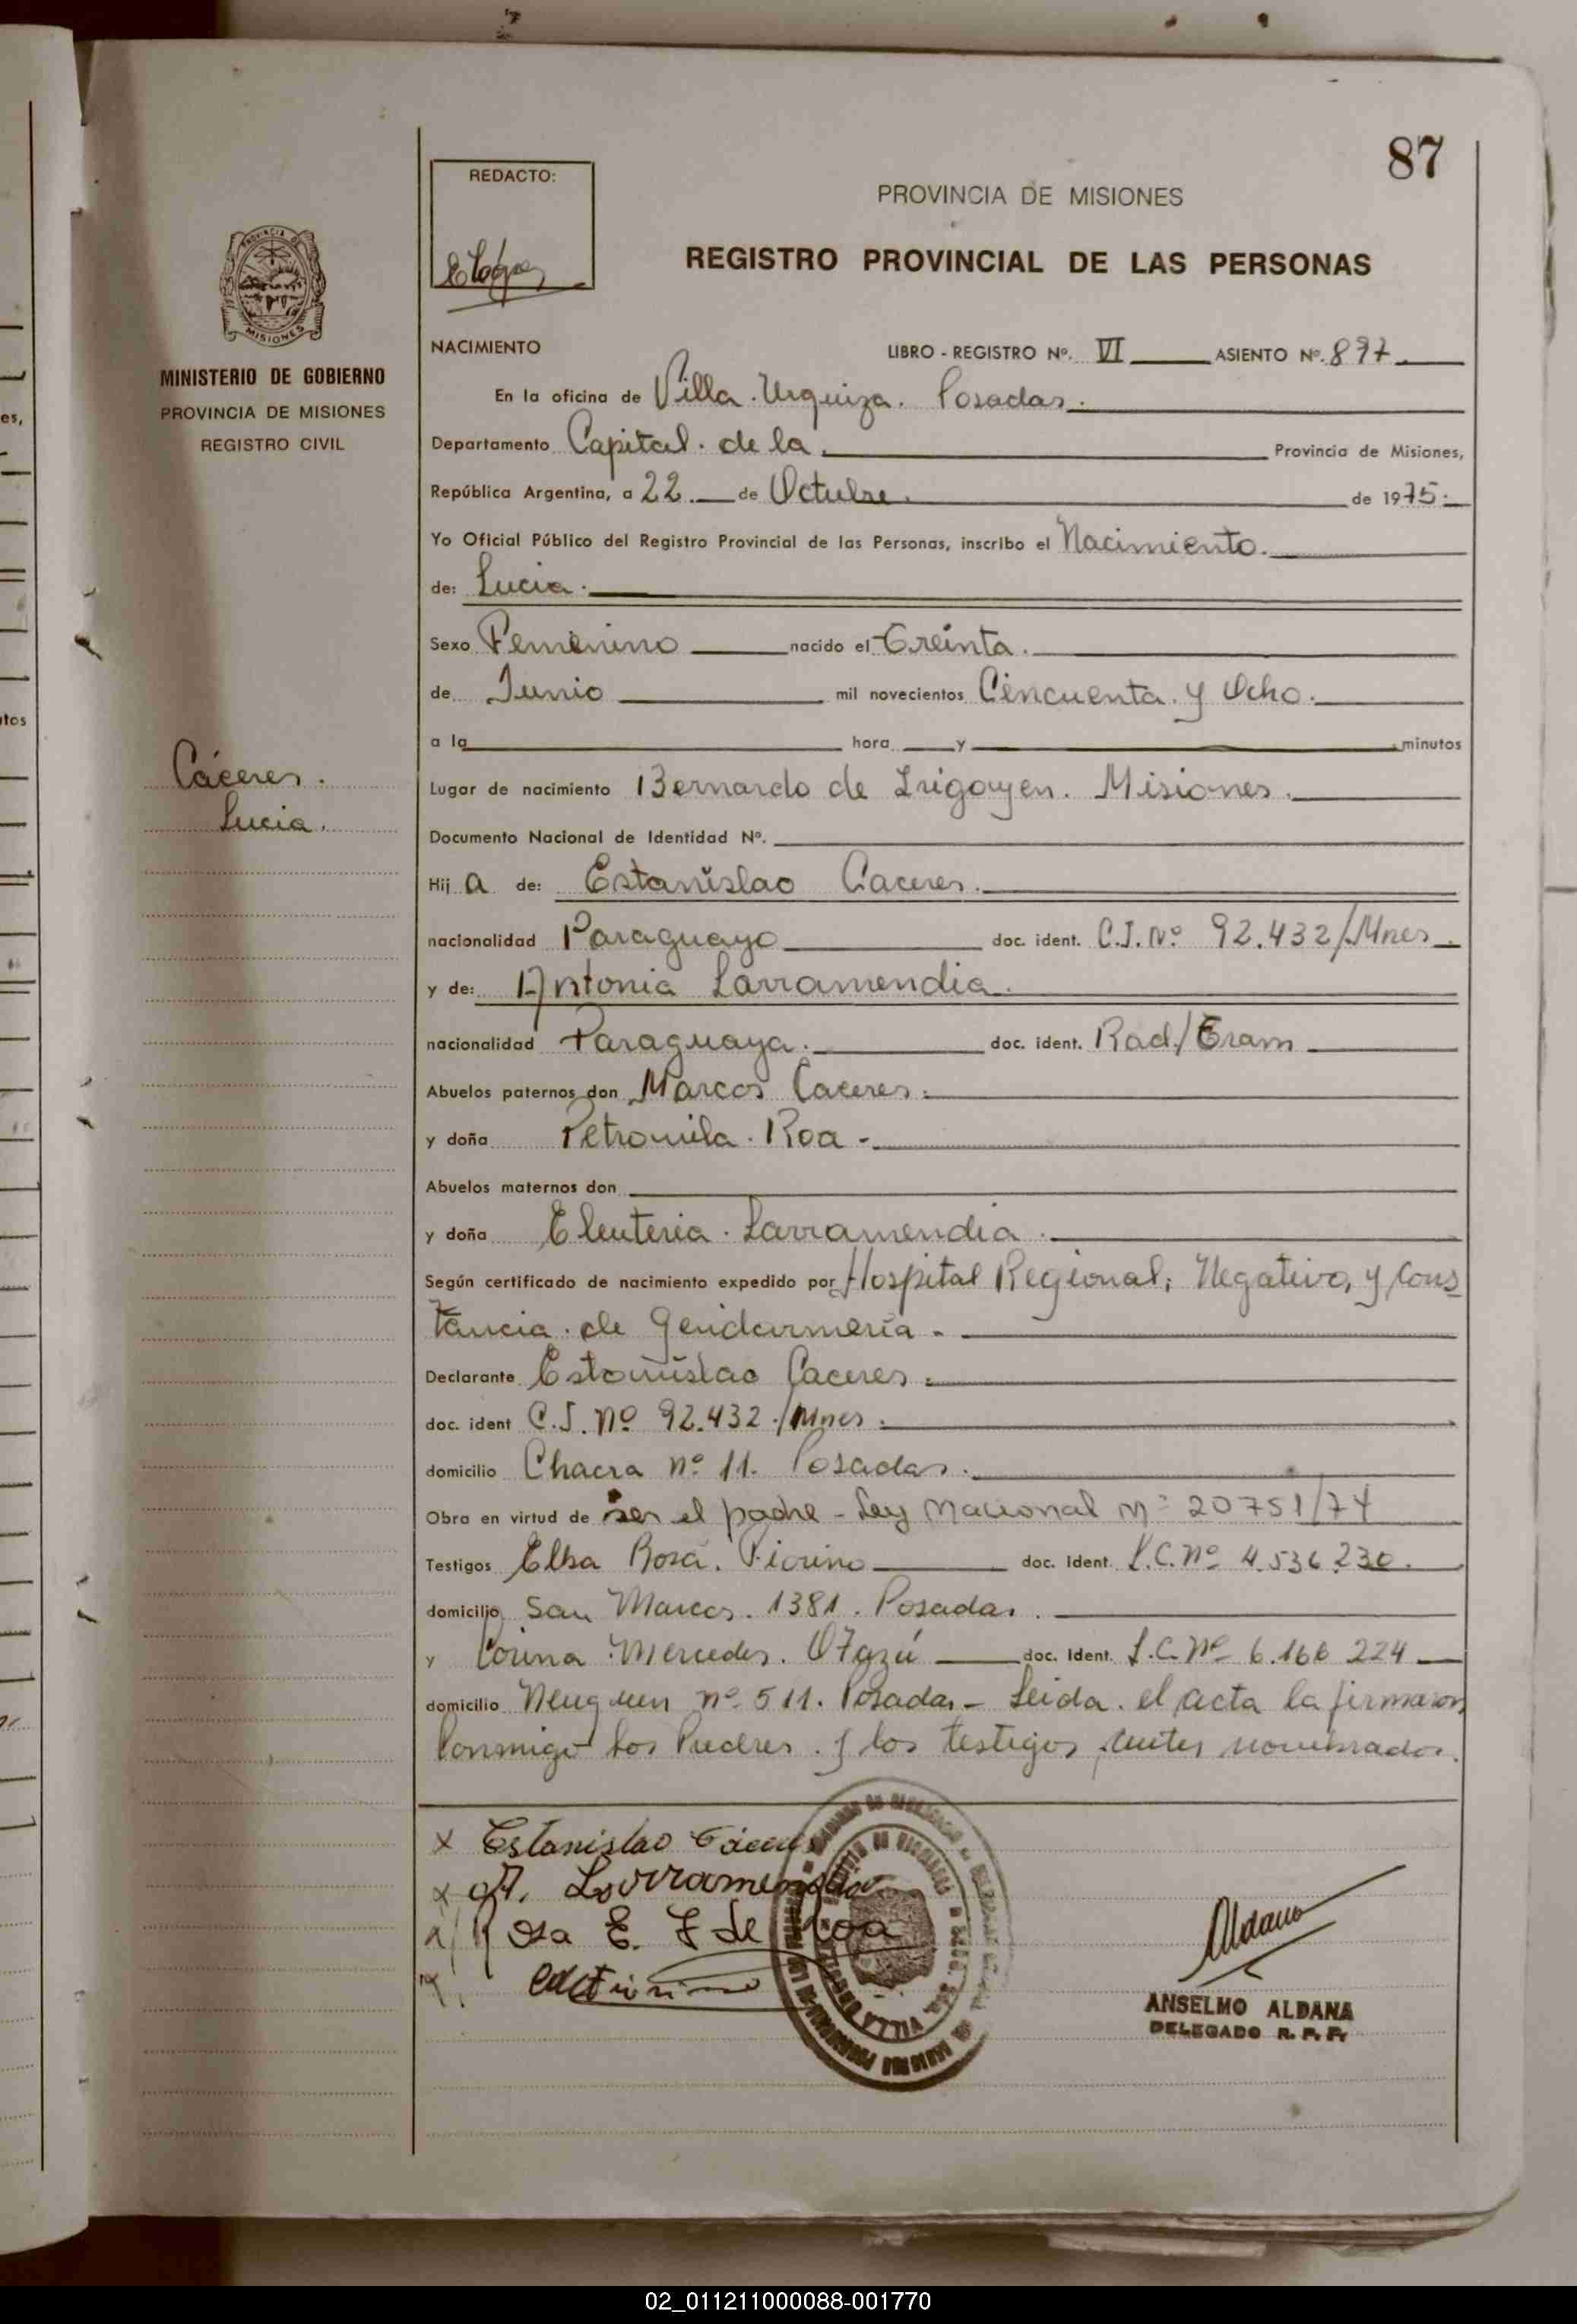 87
REDACTO:
PROVINCIA DE MISIONES
REGISTRO PROVINCIAL DE LAS PERSONAS
MINISTERIO DE GOBIERNO
PROVINCIA DE MISIONES
REGISTRO CIVIL
NACIMIENTO LIBRO - REGISTRO Nº. VI ASIENTO Nº. 897
En la oficina de Villa Urquiza. Posadas.
Departamento Capital. de la Provincia de Misiones,
República Argentina, a 22 de Octubre. de 1975.
Yo Oficial Público del Registro Provincial de las Personas, inscribo el Nacimiento.
de: Lucia.
Sexo Femenino nacido el Treinta.
de Junio mil novecientos Cincuenta. y Ocho.
a la hora y minutos
Cáceres.
Lucia.
Lugar de nacimiento Bernardo de Irigoyen. Misiones.
Documento Nacional de Identidad Nº.
Hij a de: Estanislao Caceres.
nacionalidad Paraguayo doc. ident. C.I. Nº 92.432/Mnes.
y de: Antonia Larramendia.
nacionalidad Paraguaya. doc. ident. Rad./Tram
Abuelos paternos don Marcos Caceres.
y doña Petronila. Roa.-
Abuelos maternos don
y doña Eleuteria. Larramendia.
Según certificado de nacimiento expedido por Hospital Regional, Negativo, y Cons
tancia. de Gendarmería.-
Declarante Estanislao Caceres.
doc. ident C.I. Nº 92.432./Mnes.
domicilio Chacra nº 11. Posadas.
Obra en virtud de ser el padre - Ley Nacional Nº 20751/74
Testigos Elsa Rosa. Fiorino doc. Ident. L.C. Nº 4.536.230.
domicilio San Marcos. 1381. Posadas.
y Corina Mercedes. Otazú doc. Ident. L.C. Nº 6.166 224
domicilio Neuquen nº 511. Posadas - Leida. el acta la firmaron
Conmigo los Padres. y los testigos antes nombrados.
x Estanislao Cáceres
x A. Larramendia
Rosa E. F de Roa
Aldana
ANSELMO ALDANA
DELEGADO R. P. P.
02_011211000088-001770